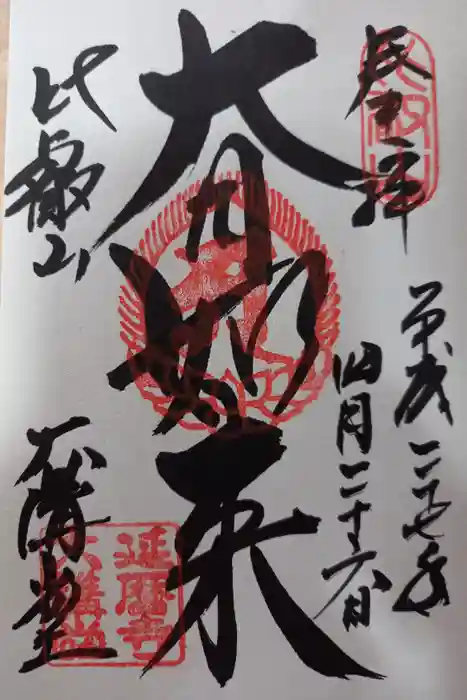 奉拝
比叡山
平成二十七年
四月二十六日
大日如来
比叡山
大講堂
延暦寺
大講堂